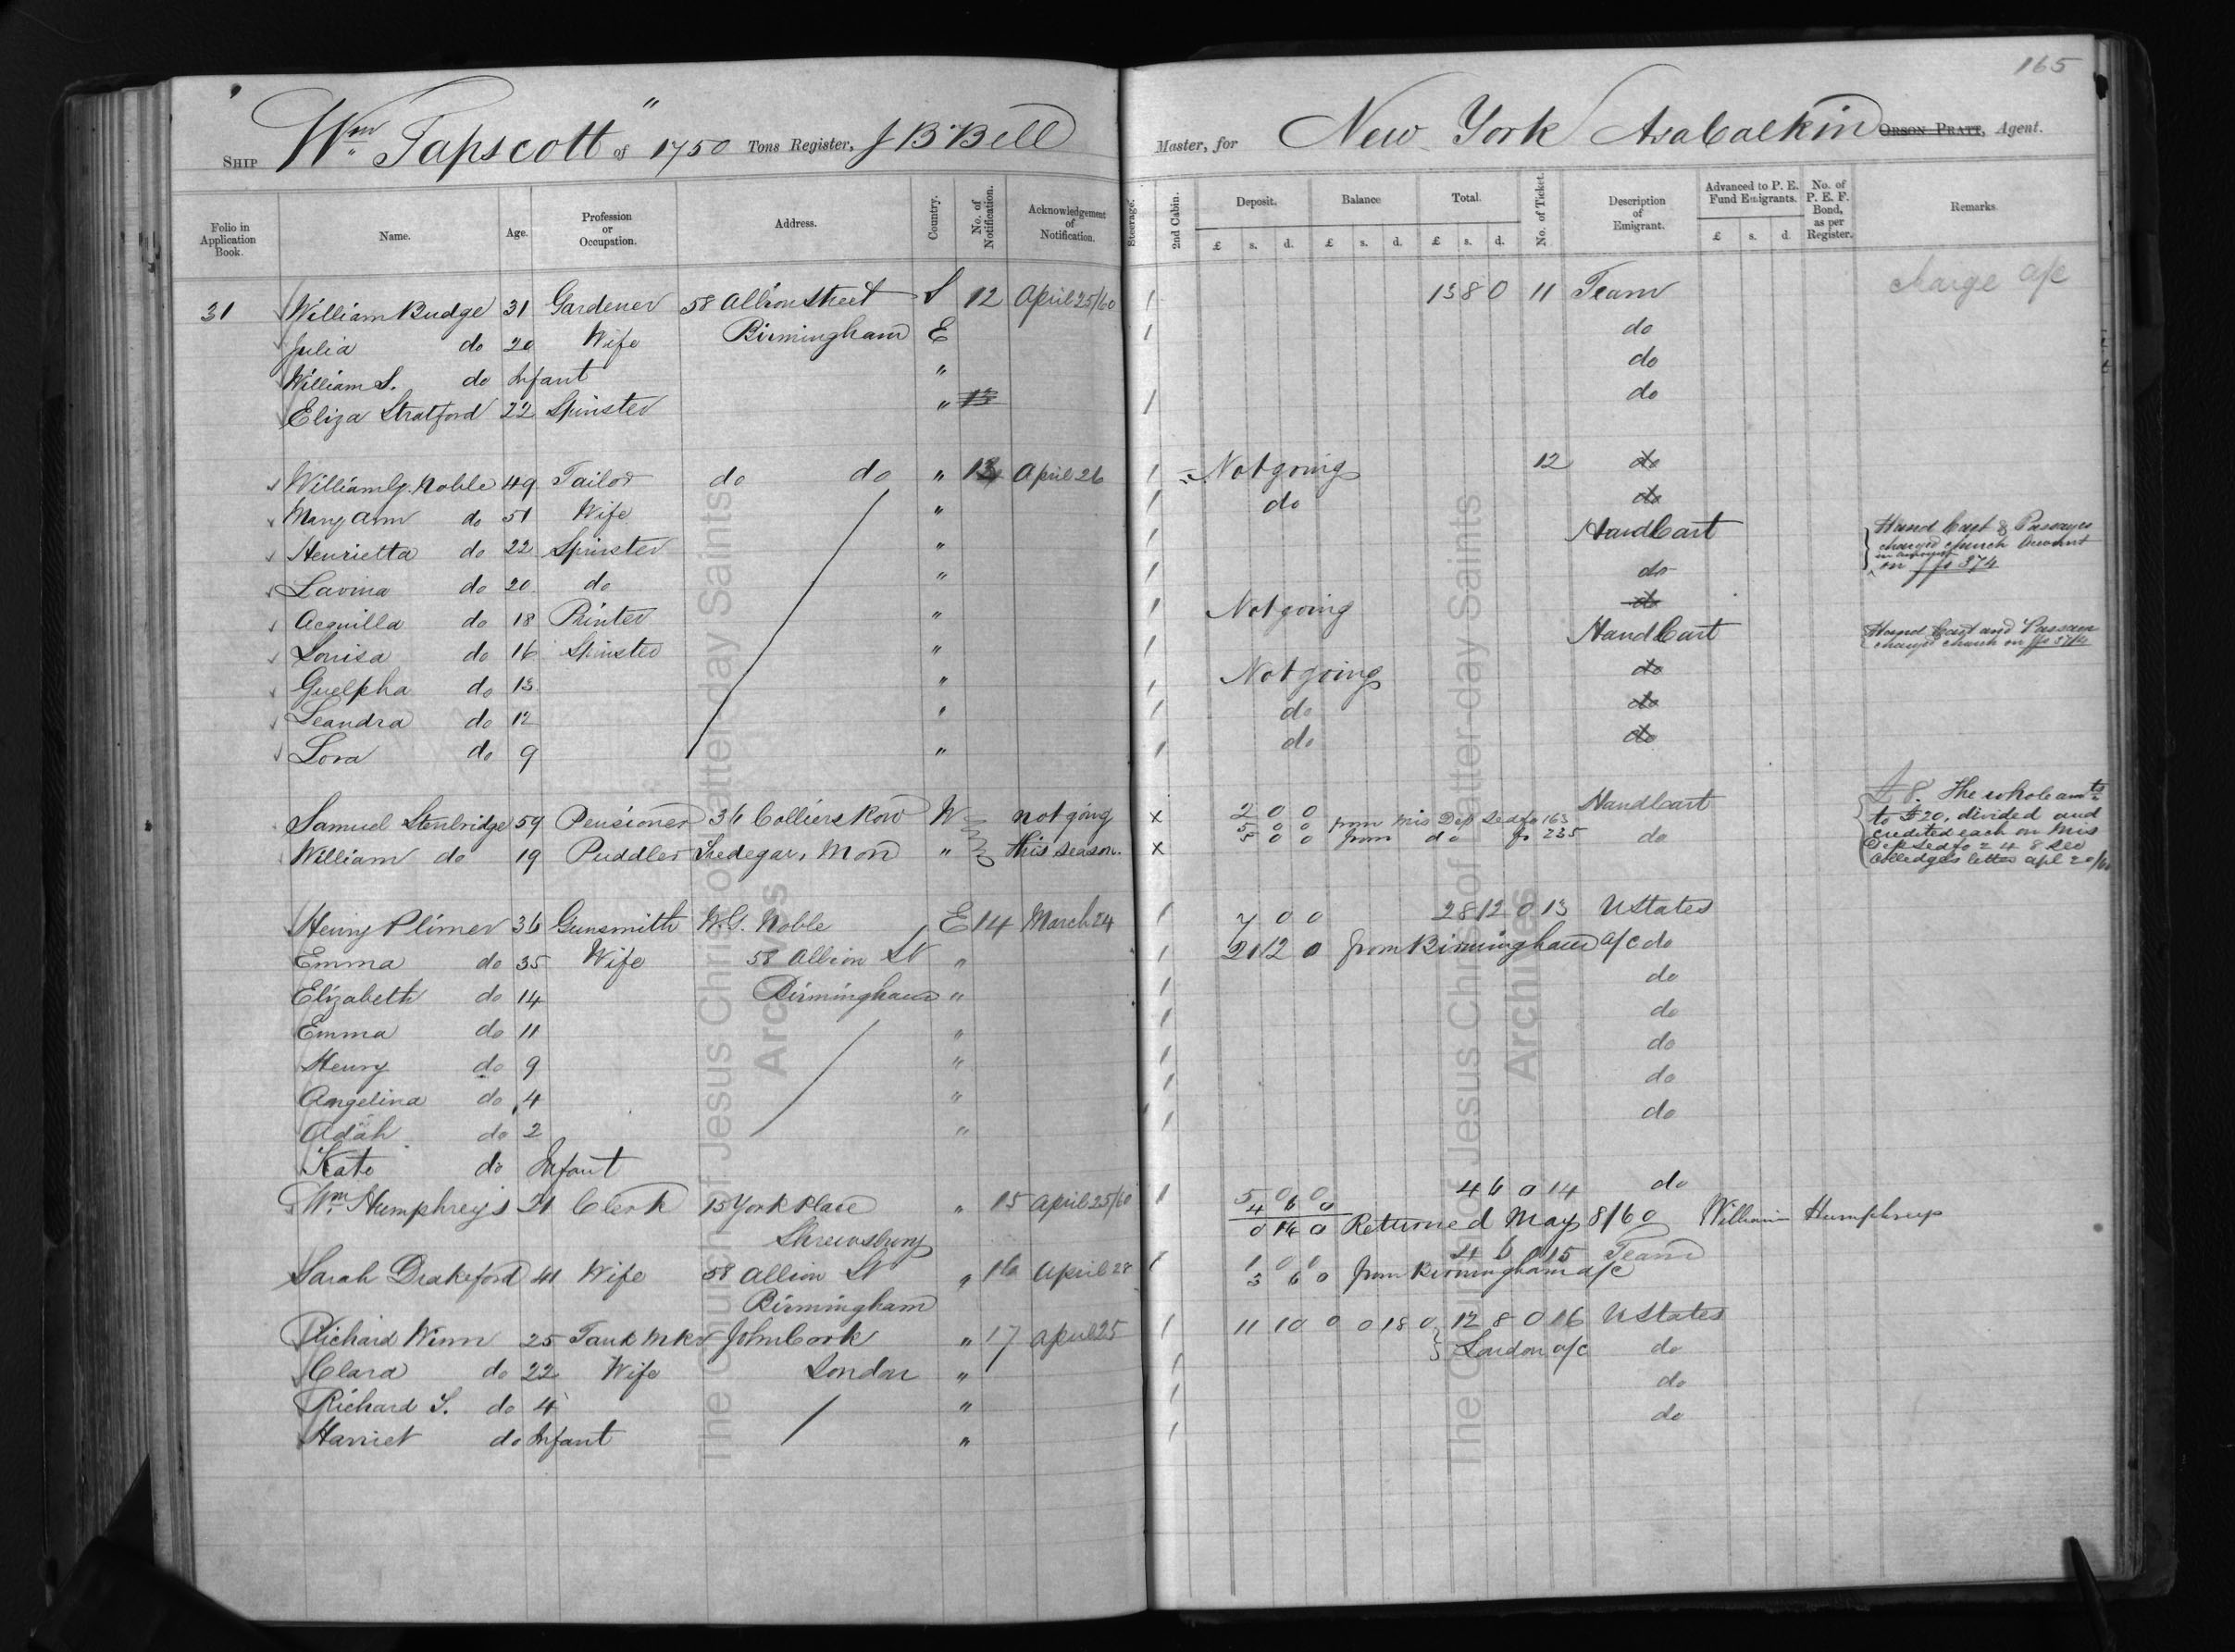 165
SHIP Wm Tapscott of 1750 Tons Register, J B Bell Master, for New York Asa Calkin ORSON PRATT, Agent.
Folio in Application Book. Name. Age. Profession or Occupation. Address. Country. No. of Notification. Acknowledgement of Notification. Steerage. 2nd Cabin. Deposit. Balance Total. No. of Ticket. Description of Emigrant. Advanced to P. E. Fund Emigrants. No. of P. E. F. Bond, as per Register. Remarks
£ s. d. £ s. d. £ s. d. £ s. d.
31 William Budge 31 Gardener 58 Albion Street S 12 April 25/60 1 13 8 0 11 Team charge a/c
Julia do 20 Wife Birmingham E 1 do
William S. do Infant " do
Eliza Stratford 22 Spinster " 13 1 do
William G. Noble 49 Tailor do do " 13 April 26 1 Not going 12 do
Mary Ann do 51 Wife " 1 do do
Henrietta do 22 Spinster " 1 HandCart Hand Cart & Passages
charged church Account
on fo 374
Lavina do 20 do " 1 do
Acquilla do 18 Printer " 1 Not going do
Louisa do 16 Spinster " 1 HandCart Hand Cart and Passage
charged church on fo 374
Guelpha do 13 " 1 Not going do
Leandra do 12 " 1 do do
Lora do 9 " 1 do do
Samuel Stenbridge 59 Pensioner 36 Colliers Row W not going x 2 0 0 HandCart £8. The whole amts
5 0 0 from Mis Dep Led fo 163 to £20, divided and
William do 19 Puddler Tredegar, Mon " this season. x 5 0 0 from do fo 235 do credited each on Mis
Dep Led fo 248 see
letter apl 20/60
Henry Plimer 36 Gunsmith W. G. Noble E 14 March 24 1 7 0 0 28 12 0 13 U States
Emma do 35 Wife 58 Albion St " 1 21 12 0 from Birmingham a/c do
Elizabeth do 14 Birmingham " 1 do
Emma do 11 " 1 do
Henry do 9 " 1 do
Angelina do 4 " 1 do
Adah do 2 " 1 do
Kate do Infant
Wm Humphreys 21 Clerk 15 York Place " 15 April 25/60 1 5 0 0 4 6 0 14 do
4 6 0
Shrewsbury 0 14 0 Returned May 8/60 William Humphreys
Sarah Drakeford 41 Wife 58 Albion St " 16 April 28 1 1 0 0 4 6 0 15 Team
3 6 0 from Birmingham a/c
Birmingham
Richard Winn 25 Tank Mkr John Cook " 17 April 25 1 11 10 0 0 18 0 12 8 0 16 U States
Clara do 22 Wife London " 1 London a/c do
Richard S. do 4 " 1 do
Harriet do Infant " 1 do
The Church of Jesus Christ of Latter-day Saints
Archives
The Church of Jesus Christ of Latter-day Saints
Archives